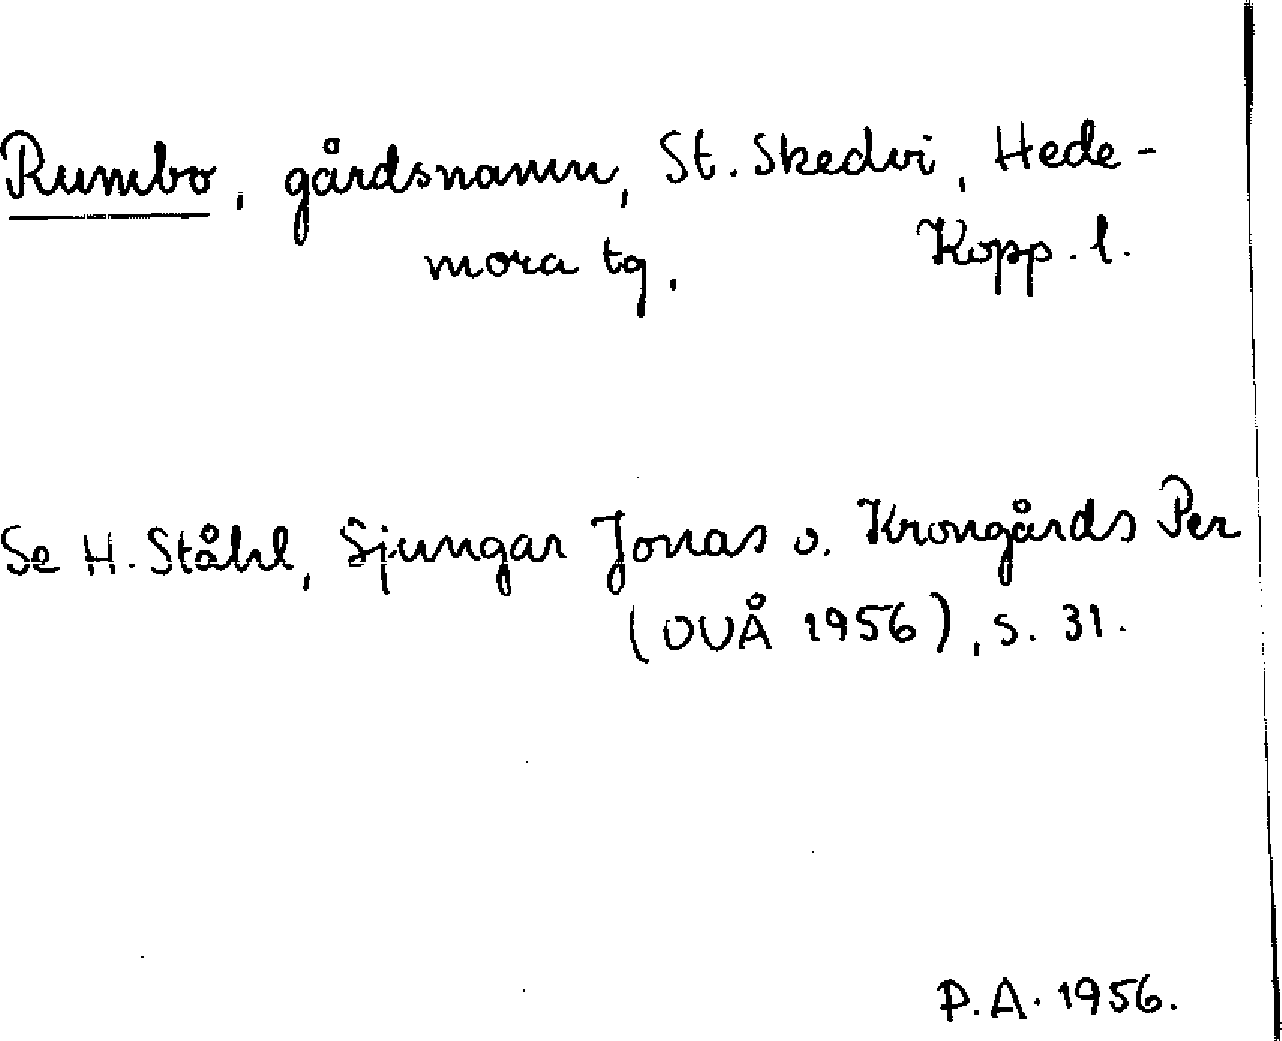 Rumbo, gårdsnamn, St. Skedvi, Hede-
mora tg. Kopp. l.
Se H. Ståhl, Sjungar Jonas o. Krongårds Per
(OUÅ 1956), s. 31.
P.A. 1956.